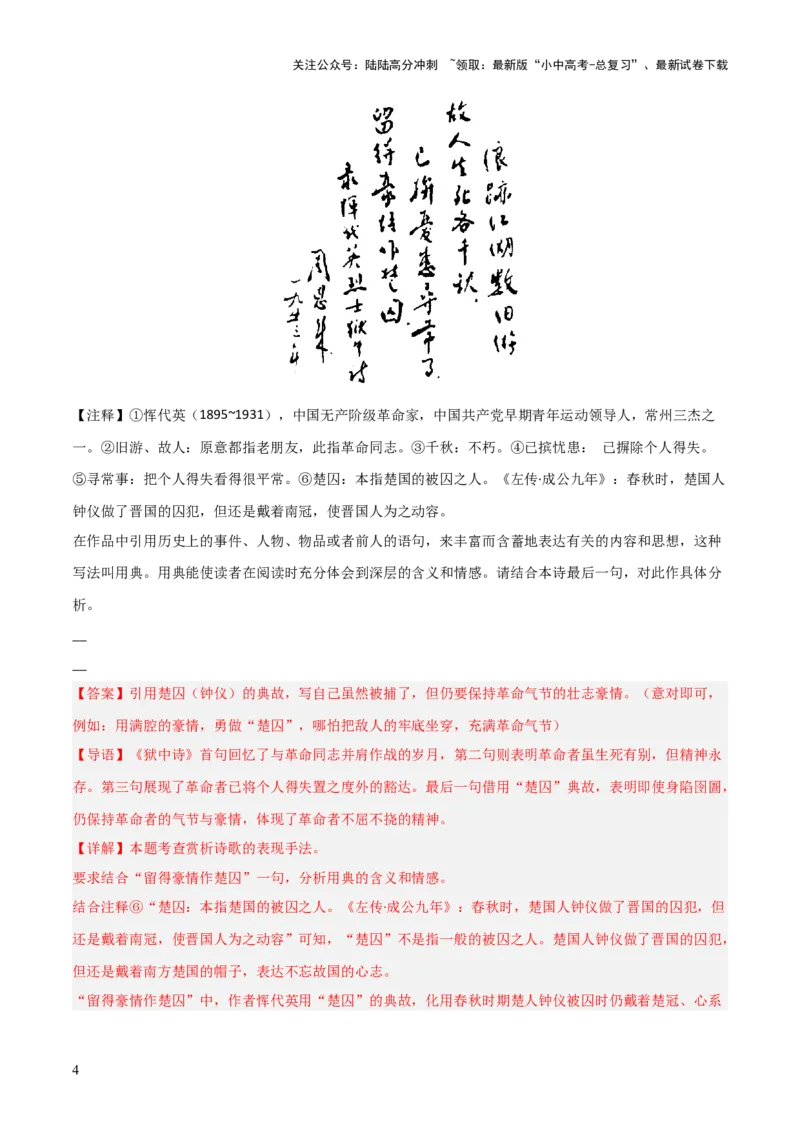 关注公众号：陆陆高分冲刺　~领取：最新版“小中高考-总复习”、最新试卷下载
浪跡江湖数旧游
故人生死各千秋，
已擯憂患尋常事，
留得豪情作楚囚。
录恽代英烈士狱中诗
周恩来
一九五三年
【注释】①恽代英（1895~1931），中国无产阶级革命家，中国共产党早期青年运动领导人，常州三杰之
一。②旧游、故人：原意都指老朋友，此指革命同志。③千秋：不朽。④已摈忧患： 已摒除个人得失。
⑤寻常事：把个人得失看得很平常。⑥楚囚：本指楚国的被囚之人。《左传·成公九年》：春秋时，楚国人
钟仪做了晋国的囚犯，但还是戴着南冠，使晋国人为之动容。
在作品中引用历史上的事件、人物、物品或者前人的语句，来丰富而含蓄地表达有关的内容和思想，这种
写法叫用典。用典能使读者在阅读时充分体会到深层的含义和情感。请结合本诗最后一句，对此作具体分
析。
__
__
【答案】引用楚囚（钟仪）的典故，写自己虽然被捕了，但仍要保持革命气节的壮志豪情。（意对即可，
例如：用满腔的豪情，勇做“楚囚”，哪怕把敌人的牢底坐穿，充满革命气节）
【导语】《狱中诗》首句回忆了与革命同志并肩作战的岁月，第二句则表明革命者虽生死有别，但精神永
存。第三句展现了革命者已将个人得失置之度外的豁达。最后一句借用“楚囚”典故，表明即使身陷囹圄，
仍保持革命者的气节与豪情，体现了革命者不屈不挠的精神。
【详解】本题考查赏析诗歌的表现手法。
要求结合“留得豪情作楚囚”一句，分析用典的含义和情感。
结合注释⑥“楚囚：本指楚国的被囚之人。《左传·成公九年》：春秋时，楚国人钟仪做了晋国的囚犯，但
还是戴着南冠，使晋国人为之动容”可知，“楚囚”不是指一般的被囚之人。楚国人钟仪做了晋国的囚犯，
但还是戴着南方楚国的帽子，表达不忘故国的心志。
“留得豪情作楚囚”中，作者恽代英用“楚囚”的典故，化用春秋时期楚人钟仪被囚时仍戴着楚冠、心系
4